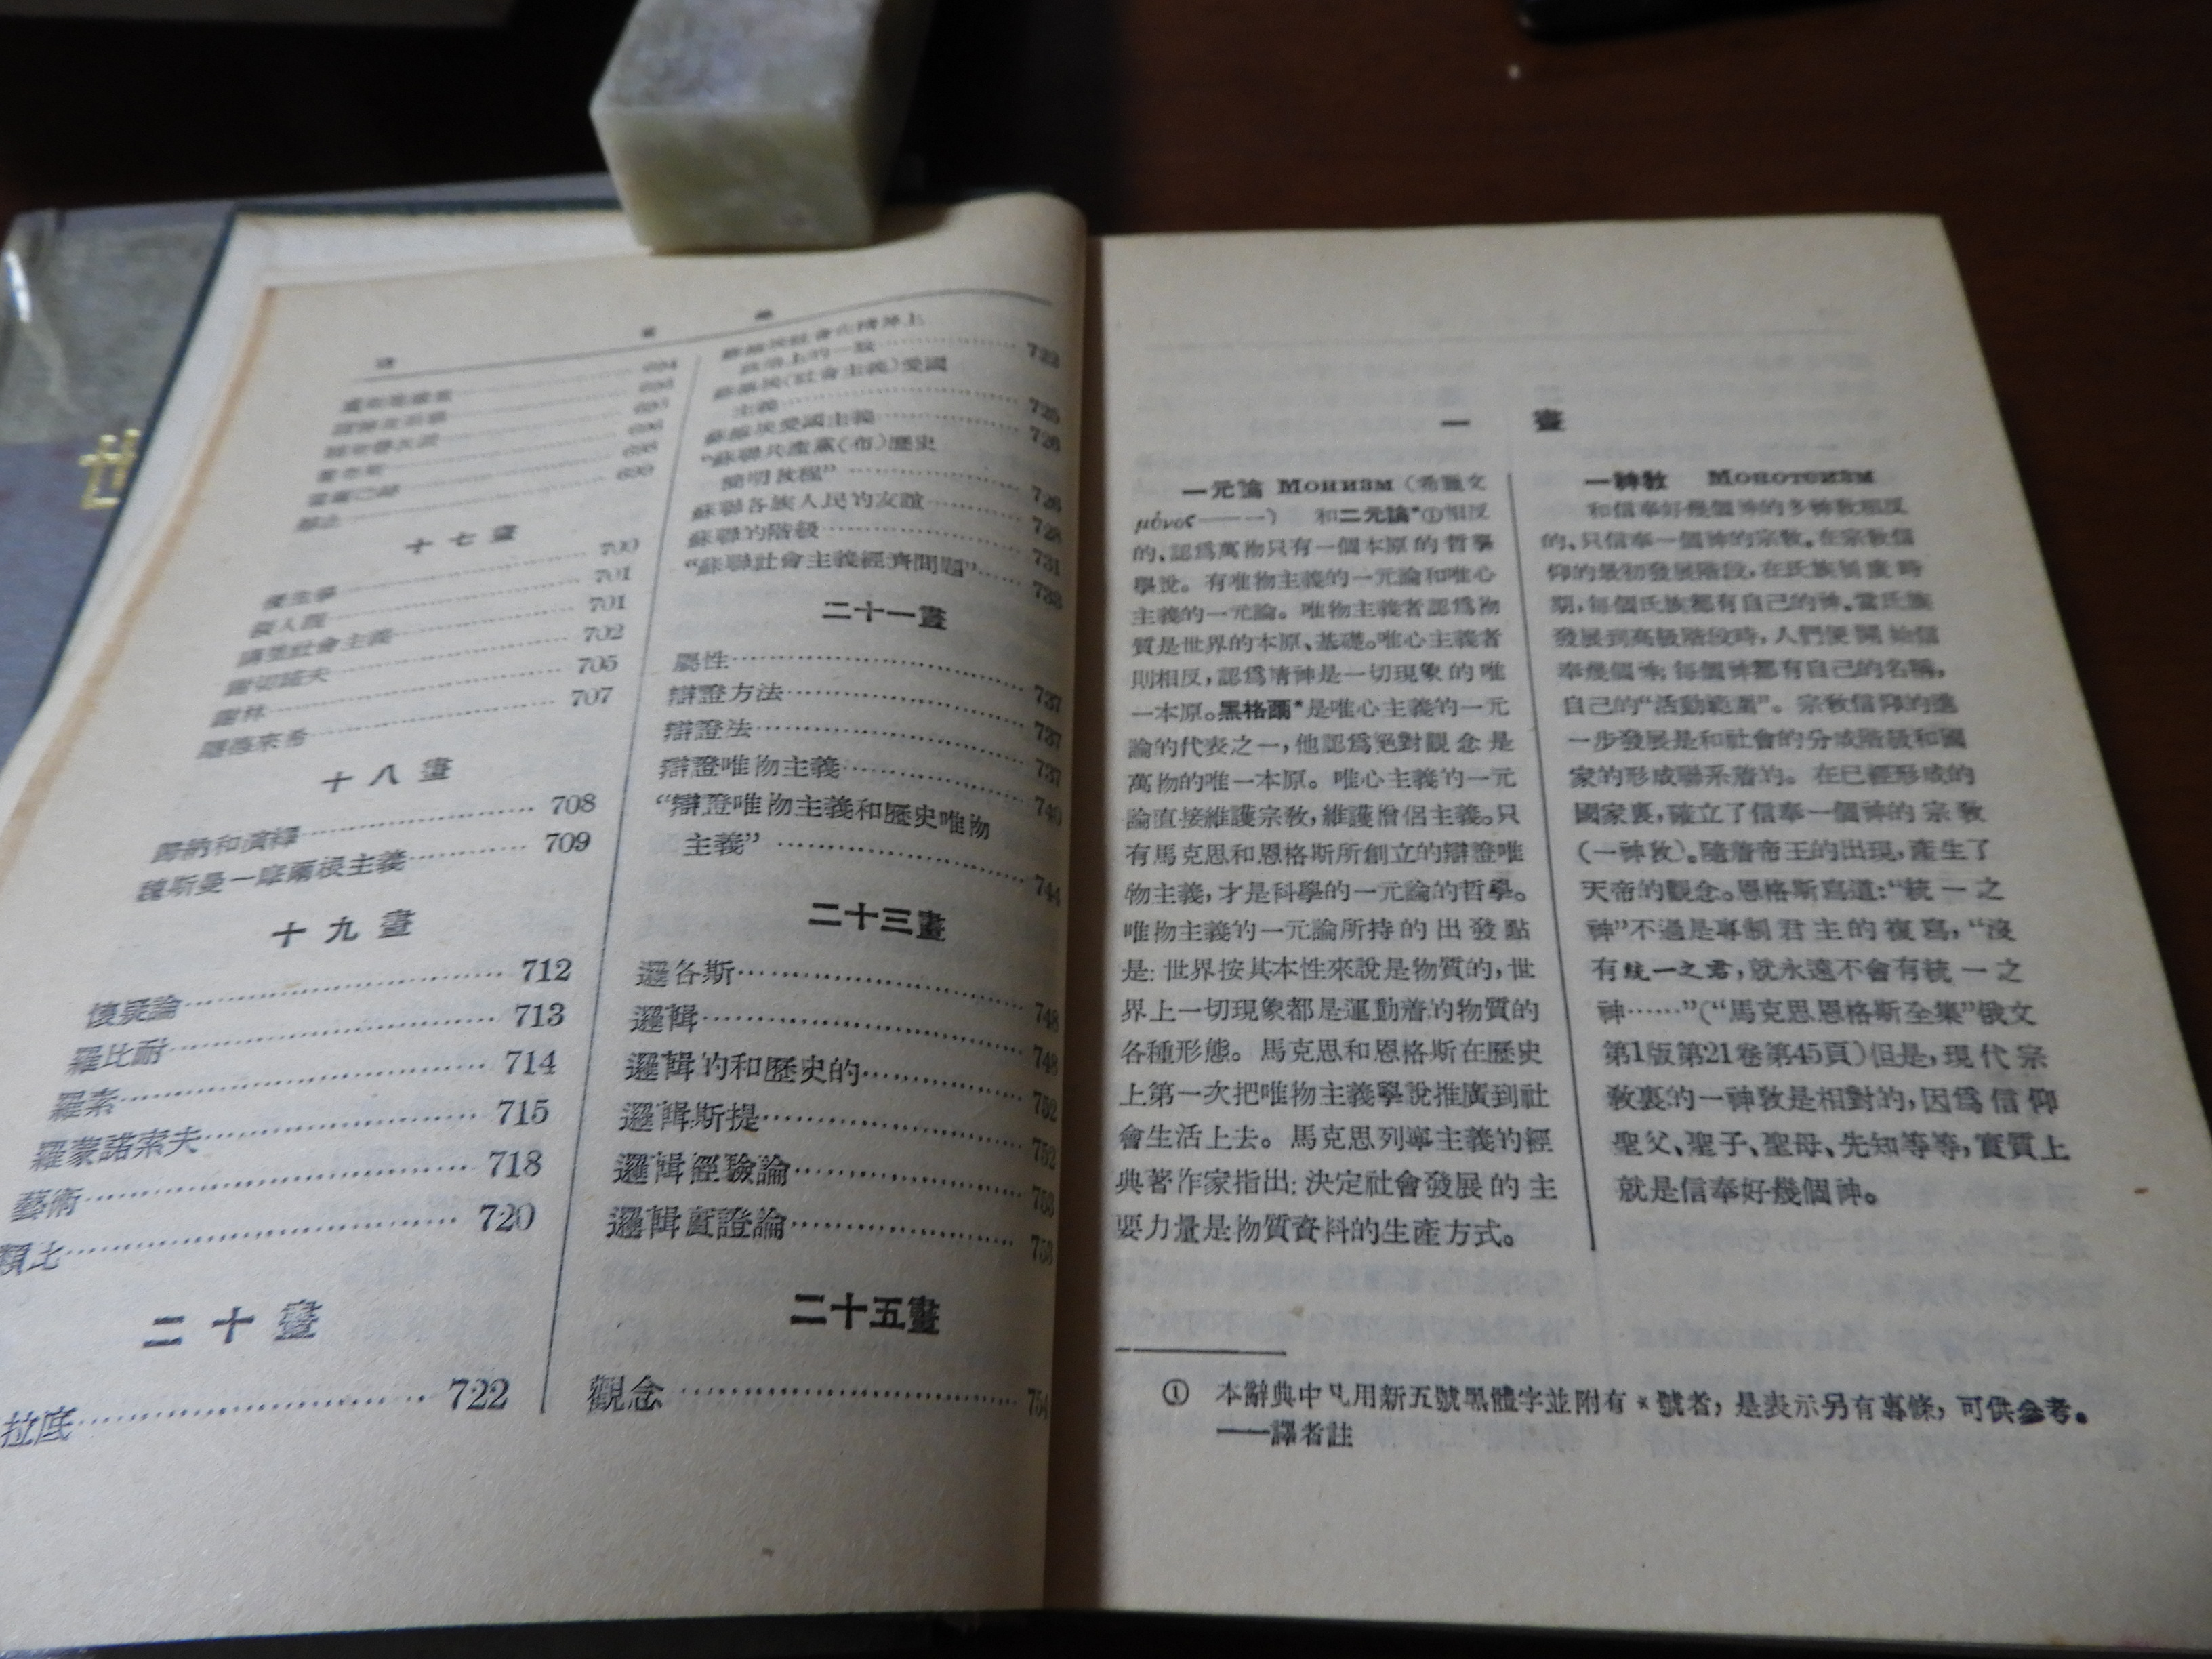 世
目 錄
694
695
695
696
698
699
十七畫
優生學 700
擬人觀 701
講壇社會主義 701
謝切諾夫 702
謝林 705
謝德林 707
十八畫
歸納和演繹 708
魏斯曼—摩爾根主義 709
十九畫
懷疑論 712
羅比耐 713
羅素 714
羅蒙諾索夫 715
藝術 718
類比 720
二十畫
拉底 722
蘇維埃社會在精神上
政治上的一致 722
蘇維埃(社會主義)愛國
主義 725
蘇維埃愛國主義 726
“蘇聯共產黨(布)歷史
簡明教程” 726
蘇聯各族人民的友誼 728
蘇聯的階級 731
“蘇聯社會主義經濟問題” 733
二十一畫
屬性 737
辯證方法 737
辯證法 737
辯證唯物主義 740
“辯證唯物主義和歷史唯物
主義” 744
二十三畫
邏各斯 748
邏輯 748
邏輯的和歷史的 752
邏輯斯提 752
邏輯經驗論 753
邏輯實證論 753
二十五畫
觀念 754
一 畫
一元論 Монизм (希臘文
μόνος——) 和二元論*①相反
的、認爲萬物只有一個本原的哲學
學說。有唯物主義的一元論和唯心
主義的一元論。唯物主義者認爲物
質是世界的本原、基礎。唯心主義者
則相反，認爲精神是一切現象的唯
一本原。黑格爾*是唯心主義的一元
論的代表之一，他認爲絕對觀念是
萬物的唯一本原。唯心主義的一元
論直接維護宗教，維護僧侶主義。只
有馬克思和恩格斯所創立的辯證唯
物主義，才是科學的一元論的哲學。
唯物主義的一元論所持的出發點
是：世界按其本性來說是物質的，世
界上一切現象都是運動着的物質的
各種形態。馬克思和恩格斯在歷史
上第一次把唯物主義學說推廣到社
會生活上去。馬克思列寧主義的經
典著作家指出：決定社會發展的主
要力量是物質資料的生產方式。
一神教 Монотеизм
和信奉好幾個神的多神教相反
的、只信奉一個神的宗教。在宗教信
仰的最初發展階段，在氏族制度時
期，每個氏族都有自己的神。當氏族
發展到高級階段時，人們便開始信
奉幾個神；每個神都有自己的名稱，
自己的“活動範圍”。宗教信仰的進
一步發展是和社會的分成階級和國
家的形成聯系着的。在已經形成的
國家裏，確立了信奉一個神的宗教
(一神教)。隨着帝王的出現，產生了
天帝的觀念。恩格斯寫道：“統一之
神”不過是專制君主的複寫，“沒
有統一之君，就永遠不會有統一之
神……”(“馬克思恩格斯全集”俄文
第1版第21卷第45頁)但是，現代宗
教裏的一神教是相對的，因爲信仰
聖父、聖子、聖母、先知等等，實質上
就是信奉好幾個神。
① 本辭典中凡用新五號黑體字並附有*號者，是表示另有專條，可供參考。
——譯者註